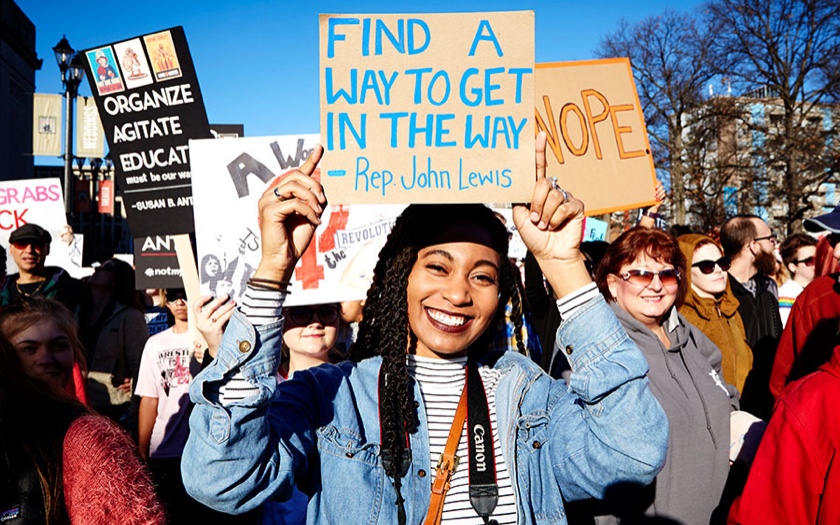 FIND A
WAY TO GET
IN THE WAY
- Rep. John Lewis
NOPE
ORGANIZE
AGITATE
EDUCAT
must be our wa
-SUSAN B. ANT
GRABS
CK
A Wom
the
REVOLUTI
ANT
#notmy
Canon